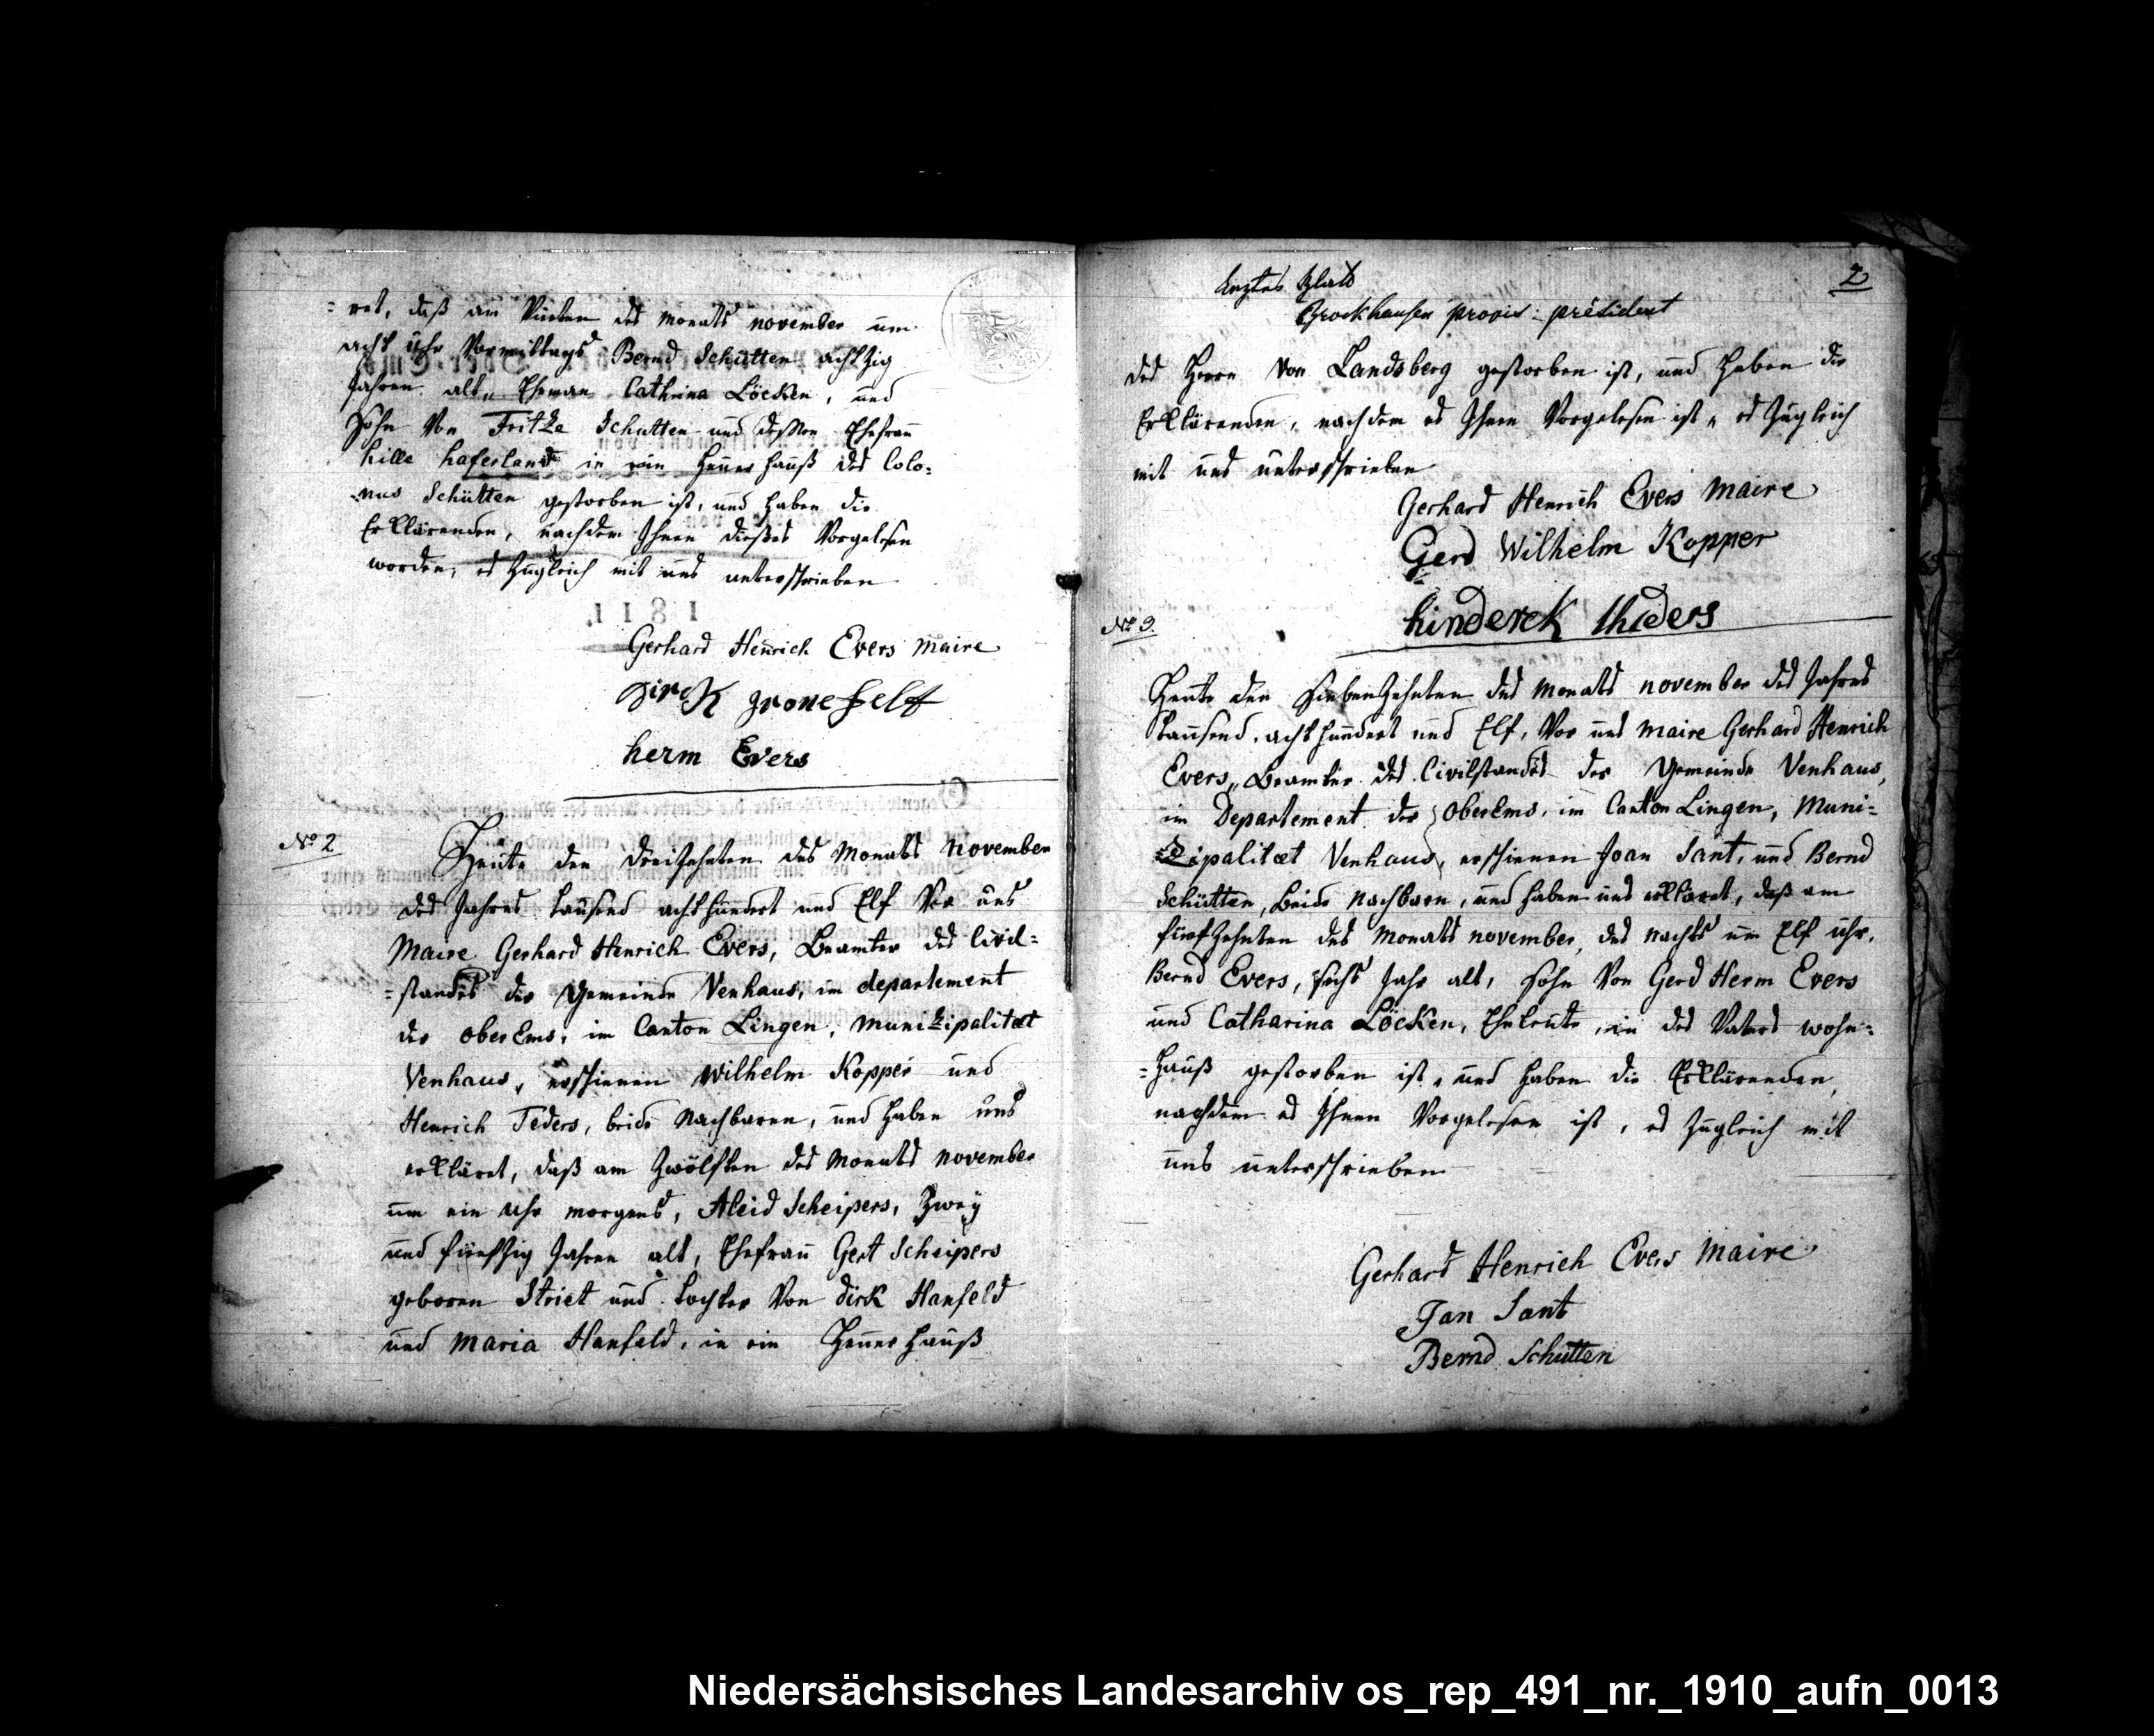 = ret, daß am Vierten des Monats november um
acht Uhr Vormittags Bernd Schütten achtzig
Jahren alt, Ehman Cathrina Löcken, und
Sohn Von Fritze Schutten und dessen Ehefrau
hille haferland in ein Heuer Hauß des Colo=
=nus Schütten gestorben ist, und haben die
Erklärenden, nachdem Ihnen dießes Vorgelesen
worden, es Zugleich mit uns unterschrieben
Gerhard Henrich Evers Maire
Dirck gronefelt
herm Evers
No 2
Heute den Dreizehnten des Monats November
des Jahres tausend achthundert und Elf Vor uns
Maire Gerhard Henrich Evers, Beamter des Civil=
=standes der Gemeinde Venhaus, im departement
der OberEms, im Canton Lingen, Munizipalitæt
Venhaus, erschienen Wilhelm Kopper und
Henrich Teders, beide Nachbaren, und haben uns
erkläret, daß am Zwölften des Monats november
um ein Uhr morgens, Aleid Scheipers, Zwey
und fünfzig Jahren alt, Ehefrau Gert Scheipers
geboren Striet und Tochter Von dirk Hanfeld
und Maria Hanfeld, in ein Heuer Hauß
2
Blatt
Brockhausen provis: président
des Herrn Von Landsberg gestorben ist, und haben die
Erklärenden, nachdem es Ihnen Vorgelesen ist, es Zugleich
mit uns unterschrieben
Gerhard Henrich Evers Maire
Gerd Wilhelm Kopper
hinderek thieders
No 3.
Heute den siebenzehnten des Monats november des Jahres
tausend, acht hundert und Elf, Vor uns Maire Gerhard Henrich
Evers, Beamter des Civilstandes der Gemeinde Venhaus,
im Departement der OberEms, im Canton Lingen, Muni=
=Zipalitæt Venhaus, erschienen Joan Sant, und Bernd
Schütten, Beide Nachbarn, und haben uns erkläret, daß am
fünfzehnten des Monats november, des nachts um Elf uhr,
Bernd Evers, sechs Jahr alt, Sohn Von Gerd Herm Evers
und Catharina Löcken, Eheleute, in des Vaters wohn=
=Hauß gestorben ist, und haben die Erklärenden,
nachdem es Ihnen Vorgelesen ist, es Zugleich mit
uns unterschrieben
Gerhard Henrich Evers Maire
Jan Sant
Bernd Schütten
Niedersächsisches Landesarchiv os_rep_491_nr._1910_aufn_0013